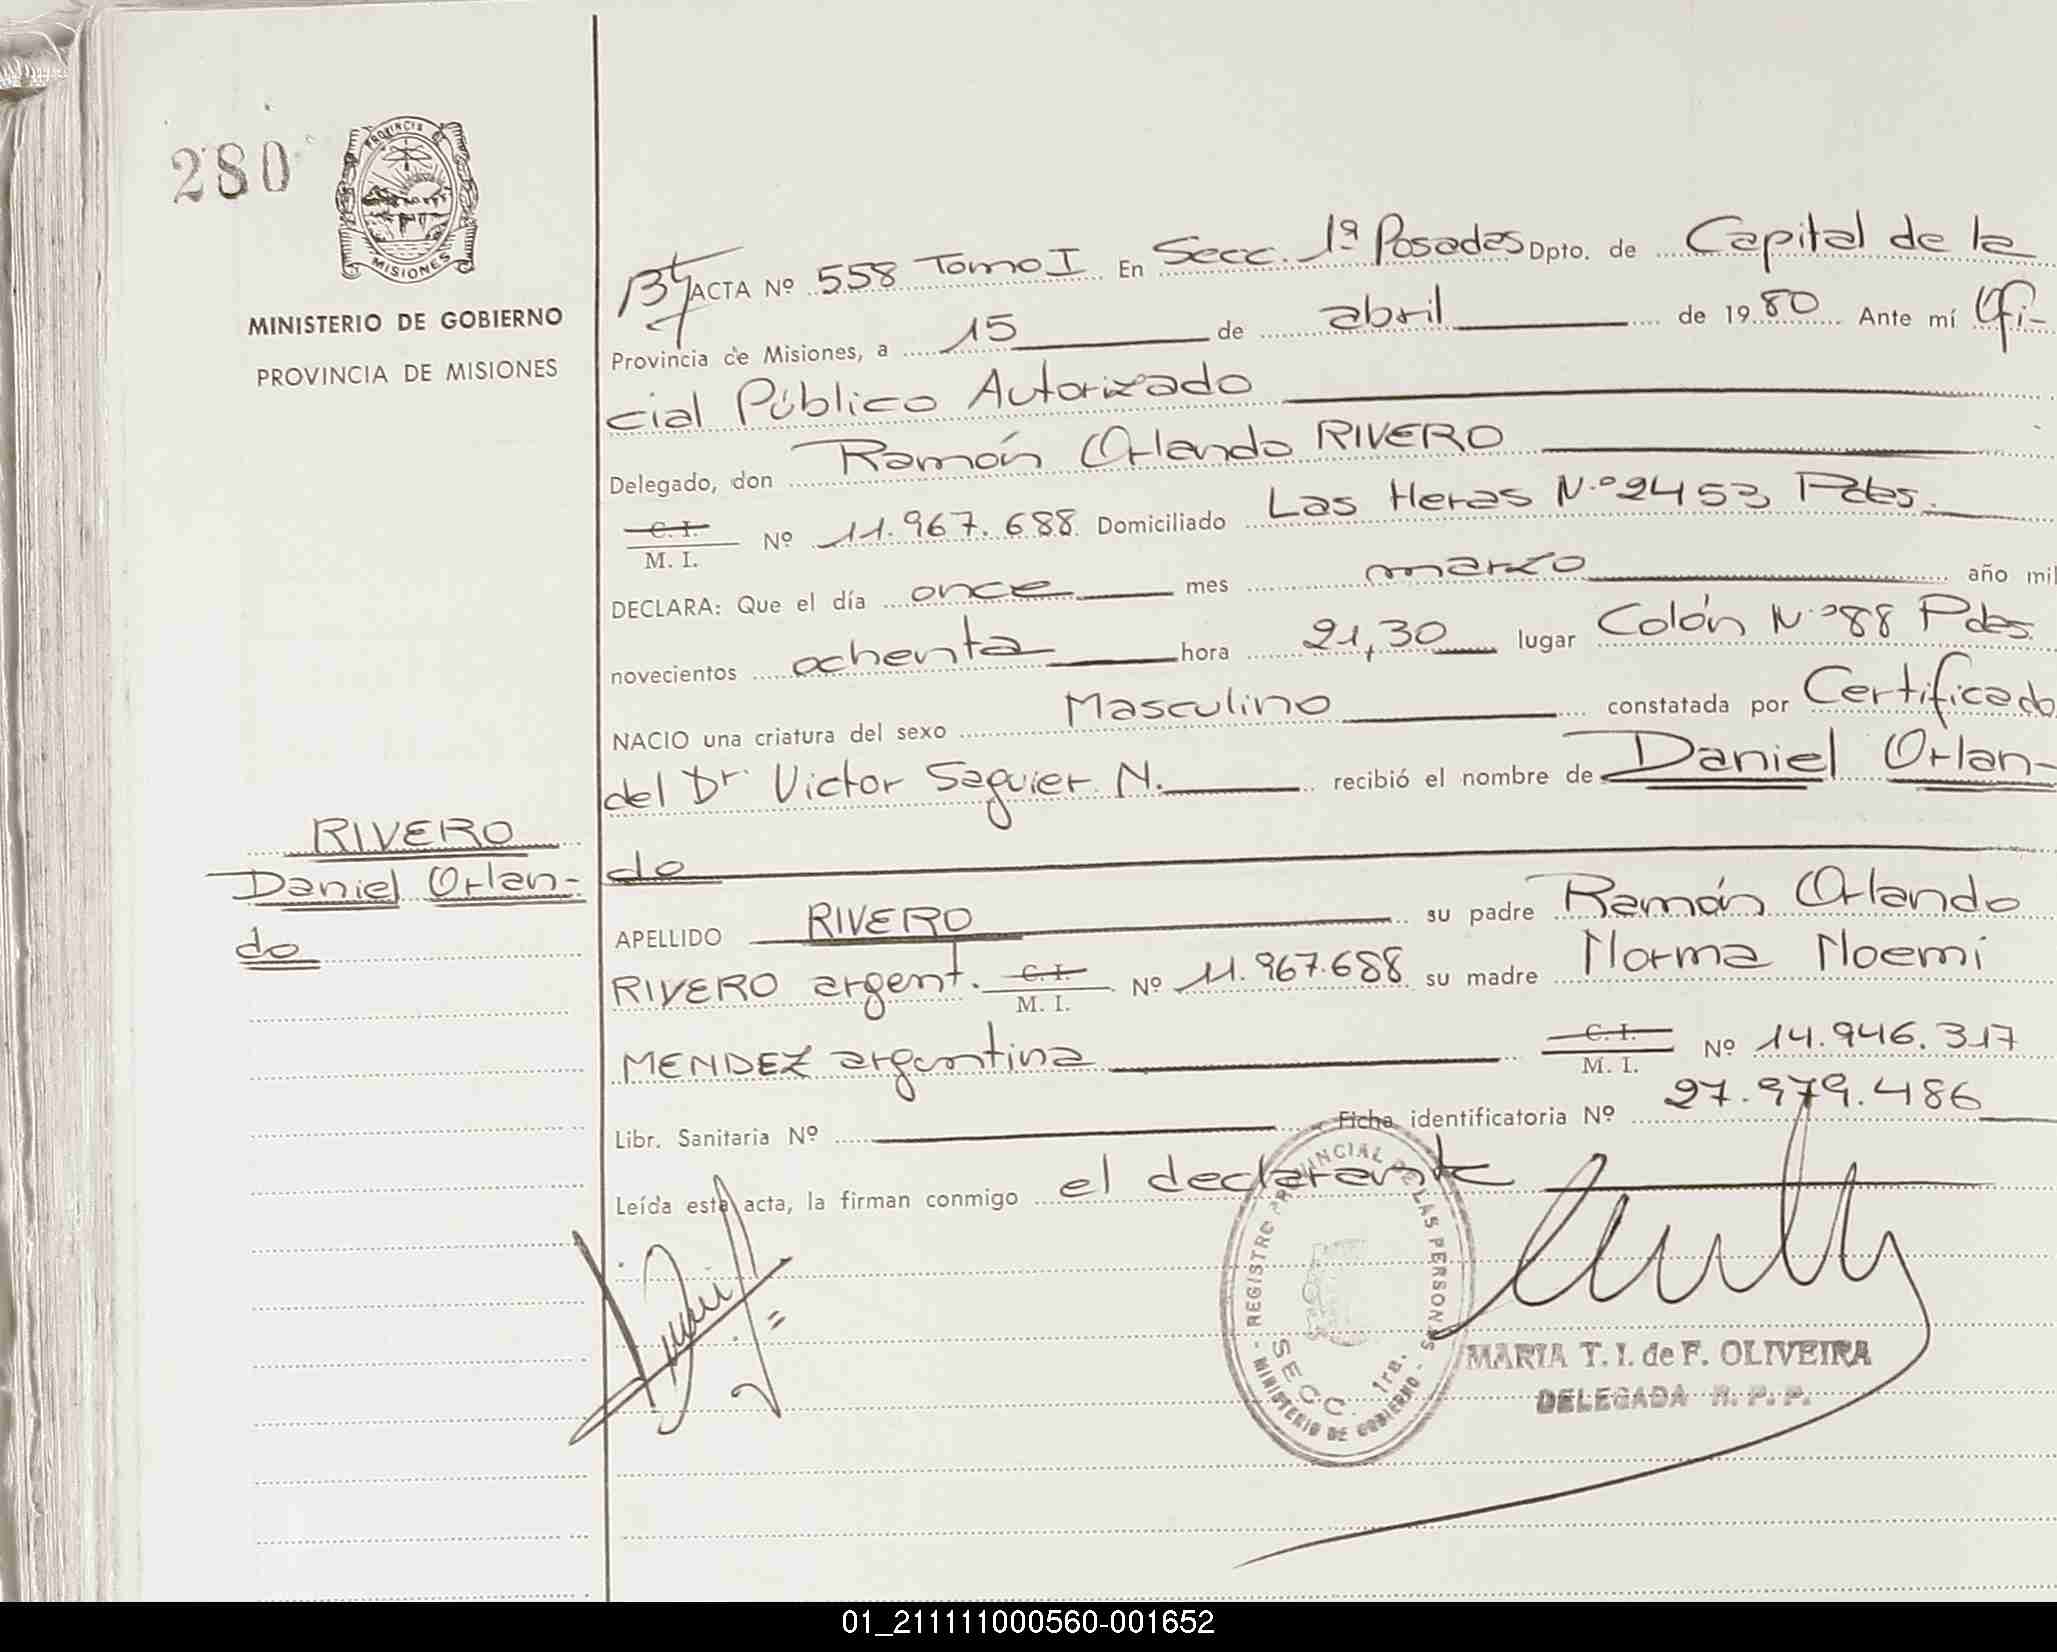 280
PROVINCIA DE
MISIONES
MINISTERIO DE GOBIERNO
PROVINCIA DE MISIONES
ACTA Nº 558 Tomo I En Secc. 1ª Posadas Dpto. de Capital de la
Provincia de Misiones, a 15 de abril de 1980 Ante mí Ofi-
cial Público Autorizado
Delegado, don Ramón Orlando RIVERO
C. I.
M. I. Nº 11.967.688 Domiciliado Las Heras N.º 2453 Pdas.
DECLARA: Que el día once mes marzo año mil
novecientos ochenta hora 21,30 lugar Colón N.º 88 Pdas.
NACIO una criatura del sexo Masculino constatada por Certificado
del Dr. Victor Saguier N. recibió el nombre de Daniel Orlan-
do
RIVERO
Daniel Orlan-
do
APELLIDO RIVERO su padre Ramón Orlando
RIVERO argent. C. I. M. I. Nº 11.967.688 su madre Norma Noemi
MENDEZ argentina C. I. M. I. Nº 14.946.317
Libr. Sanitaria Nº Ficha identificatoria Nº 27.979.486
Leída esta acta, la firman conmigo el declarante
REGISTRO PROVINCIAL DE LAS PERSONAS
SECC. 1ra.
MINISTERIO DE GOBIERNO
MARIA T. I. de F. OLIVEIRA
DELEGADA R. P. P.
01_211111000560-001652